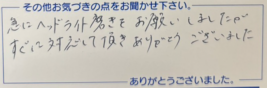 その他お気づきの点をお聞かせ下さい。
急にヘッドライト磨きをお願いしましたが
すぐに対応して頂きありがとうございました
ありがとうございました。